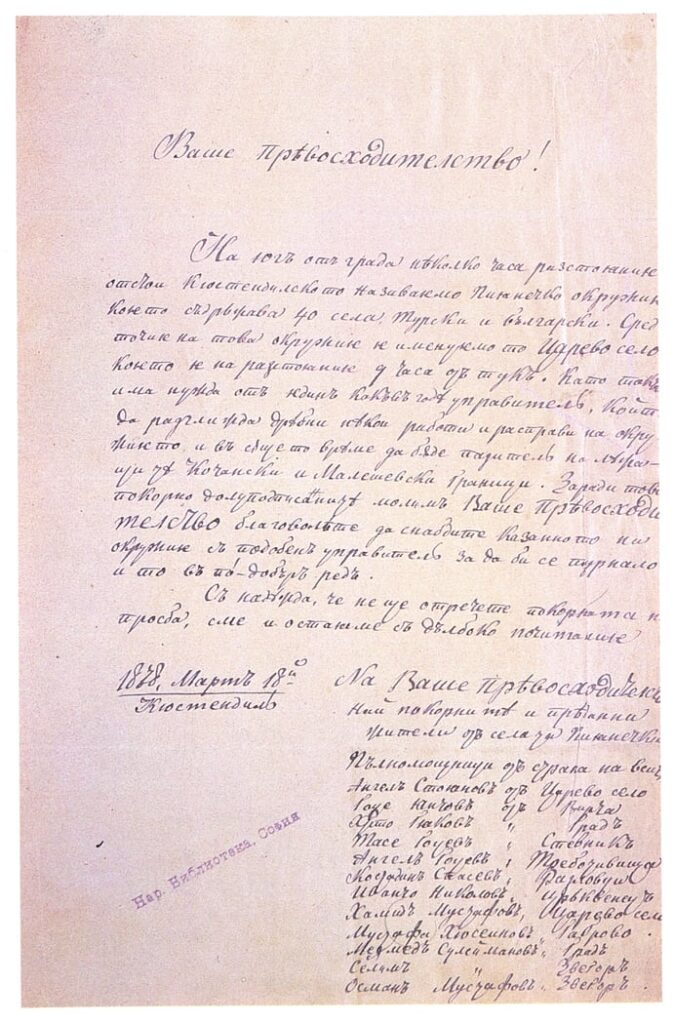 Ваше прѣвосходителство!
На югъ отъ града нѣколко часа разстояние
отстои Кюстендилското називаемо Пиянечко окружие
което съдържава 40 села, турски и български. Сред
точие на това окружие е именуемото Царево село
което е на разстояние 9 часа отъ тукъ. Като
има нужда отъ единъ какъвъ годѣ управитель, който
да разглежда дрѣбни нѣкои работи и расправи на окру
жието, и въ сѫщето врѣме да бѫде пазитель на
Кочански и Малешевски граници. Заради това
покорно долуподписанитѣ молимъ Ваше прѣвосходи
телство благоволѣте да снабдите казанното ни
окружие съ подобенъ управитель за да би се турнало
и то въ по-добъръ редъ.
Съ надежда, че не ще отречете покорната ни
просба, сме и оставаме съ дълбоко почитание
1878, Мартъ 18й
Кюстендилъ
На Ваше прѣвосходителс
най покорнитѣ и прѣданни
жители отъ села та Пиянечки
Пълномощници отъ страна на всич
Ангелъ Стояновъ отъ Царево село
Гоце Янчовъ отъ Вирча
Хрто Яковъ " Градъ
Тасе Гоцевъ " Стевникъ
Ангелъ Гоцевъ " Требочивища
Костадинъ Спасевъ " Разловци
Иванчо Николовъ " Цръквенецъ
Хамидъ Мустафовъ, Царево село
Мустафа Хюсеиновъ Габрово.
Мехмедъ Сулеймановъ " Градъ
Селимъ " Звегоръ
Османъ Мустафовъ. Звегоръ.
Нар. Библиотека, София